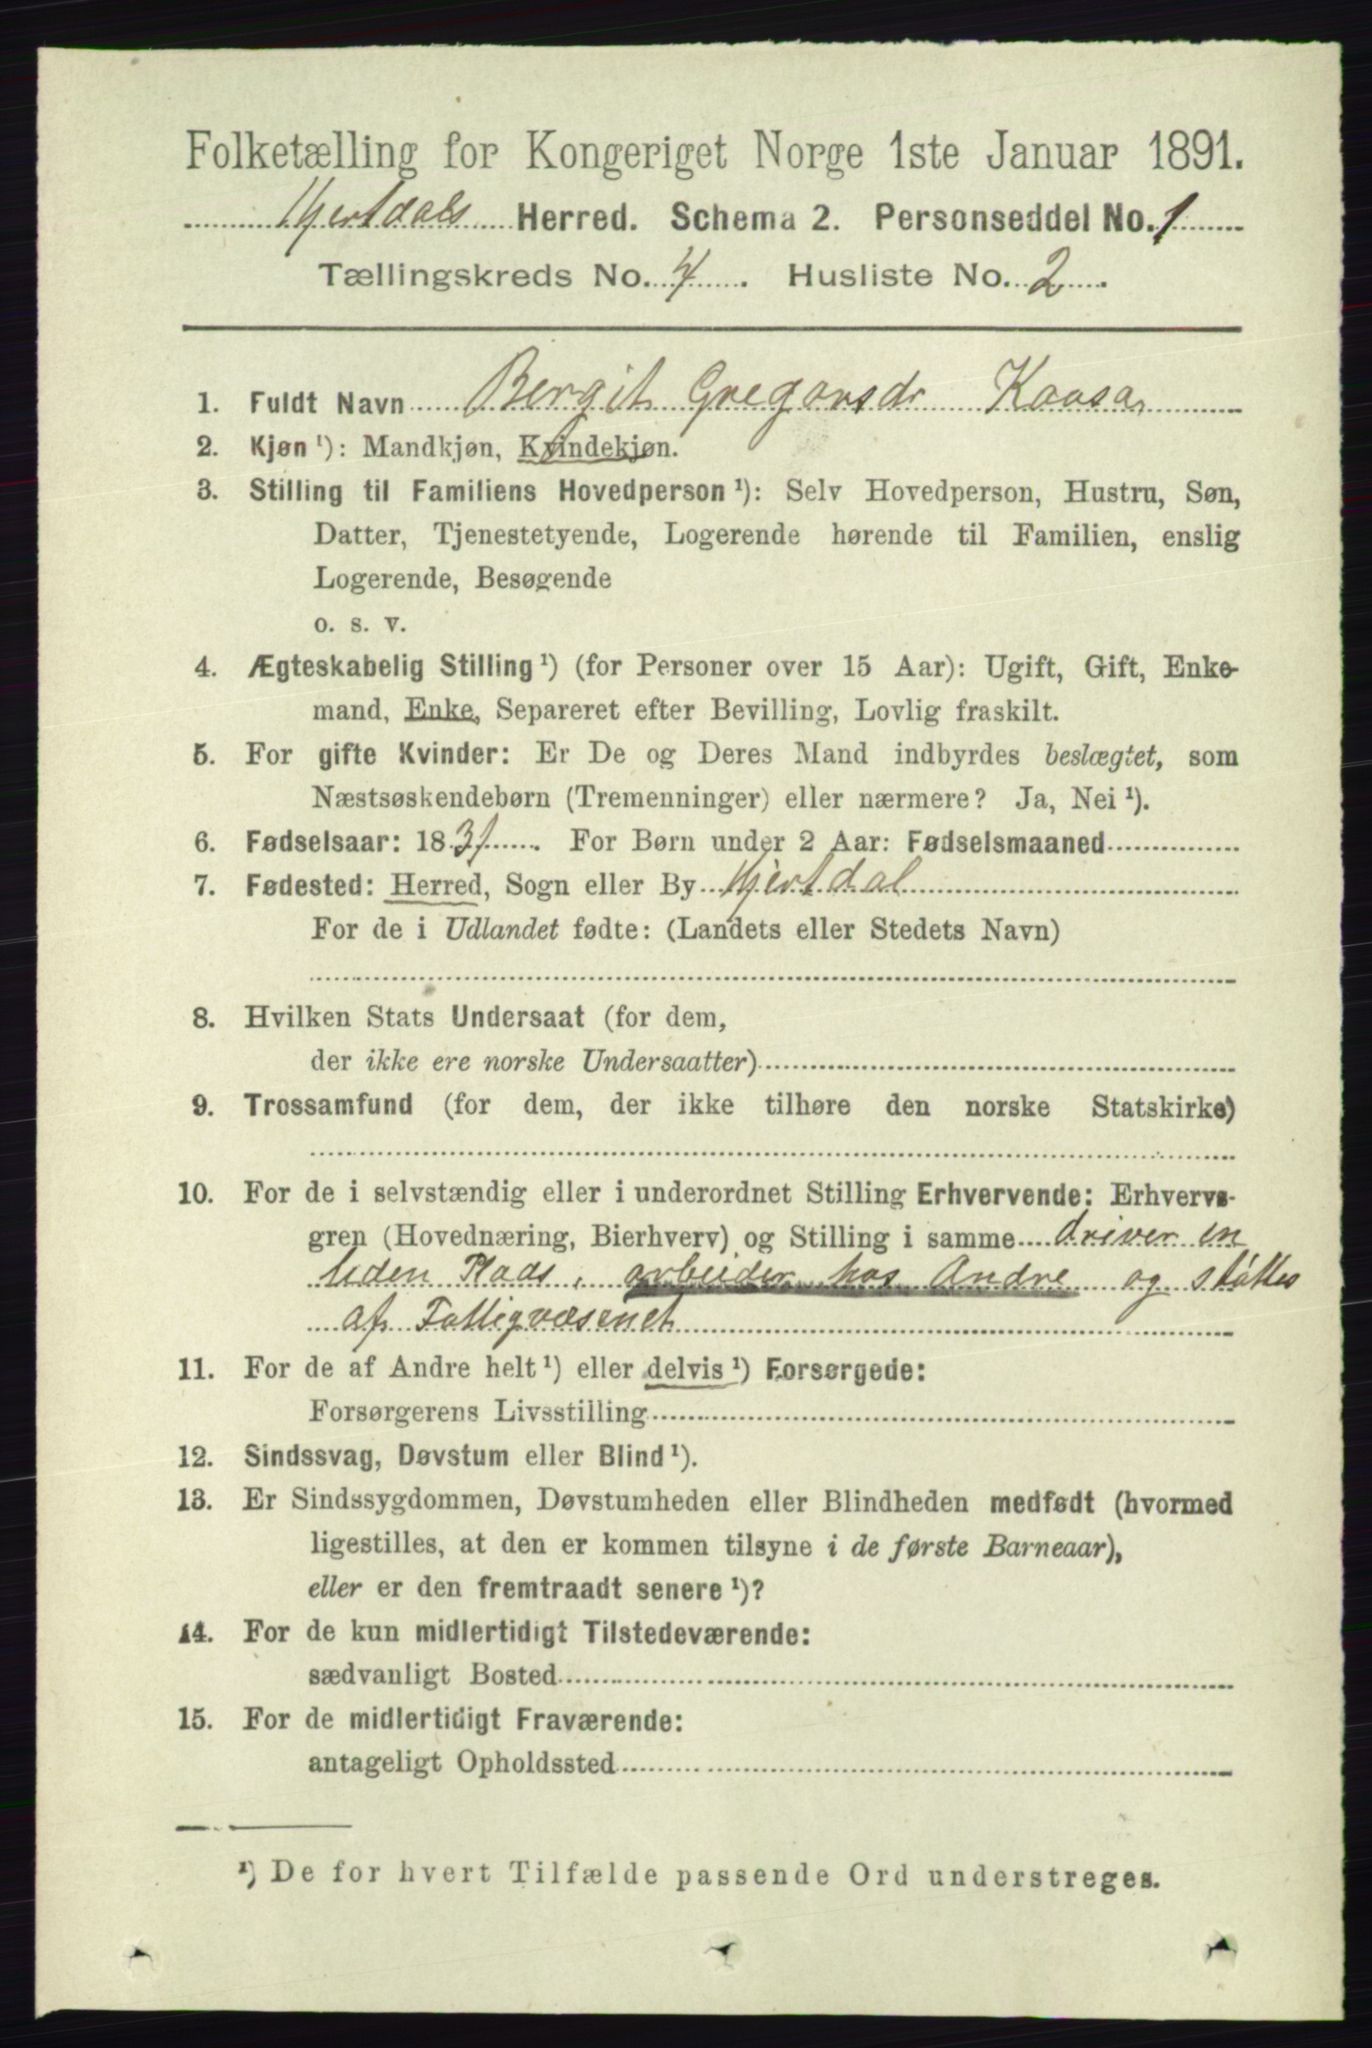 Folketælling for Kongeriget Norge 1ste Januar 1891.
Hjertdals Herred. Schema 2. Personseddel No. 1
Tællingskreds No. 4. Husliste No. 2.
1. Fuldt Navn Bergit Gregarsdr Kaasa
2. Kjøn ¹): Mandkjøn, Kvindekjøn.
3. Stilling til Familiens Hovedperson ¹): Selv Hovedperson, Hustru, Søn,
Datter, Tjenestetyende, Logerende hørende til Familien, enslig
Logerende, Besøgende
o. s. v.
4. Ægteskabelig Stilling ¹) (for Personer over 15 Aar): Ugift, Gift, Enke-
mand, Enke, Separeret efter Bevilling, Lovlig fraskilt.
5. For gifte Kvinder: Er De og Deres Mand indbyrdes beslægtet, som
Næstsøskendebørn (Tremenninger) eller nærmere? Ja, Nei ¹).
6. Fødselsaar: 1831. For Børn under 2 Aar: Fødselsmaaned
7. Fødested: Herred, Sogn eller By Hjertdal
For de i Udlandet fødte: (Landets eller Stedets Navn)
8. Hvilken Stats Undersaat (for dem,
der ikke ere norske Undersaatter)
9. Trossamfund (for dem, der ikke tilhøre den norske Statskirke)
10. For de i selvstændig eller i underordnet Stilling Erhvervende: Erhvervs-
gren (Hovednæring, Bierhverv) og Stilling i samme driver en
liden Plads, arbeider hos Andre og støttes
af Fattigvæsenet
11. For de af Andre helt ¹) eller delvis ¹) Forsørgede:
Forsørgerens Livsstilling
12. Sindssvag, Døvstum eller Blind ¹).
13. Er Sindssygdommen, Døvstumheden eller Blindheden medfødt (hvormed
ligestilles, at den er kommen tilsyne i de første Barneaar),
eller er den fremtraadt senere ¹)?
14. For de kun midlertidigt Tilstedeværende:
sædvanligt Bosted
15. For de midlertidigt Fraværende:
antageligt Opholdssted
¹) De for hvert Tilfælde passende Ord understreges.